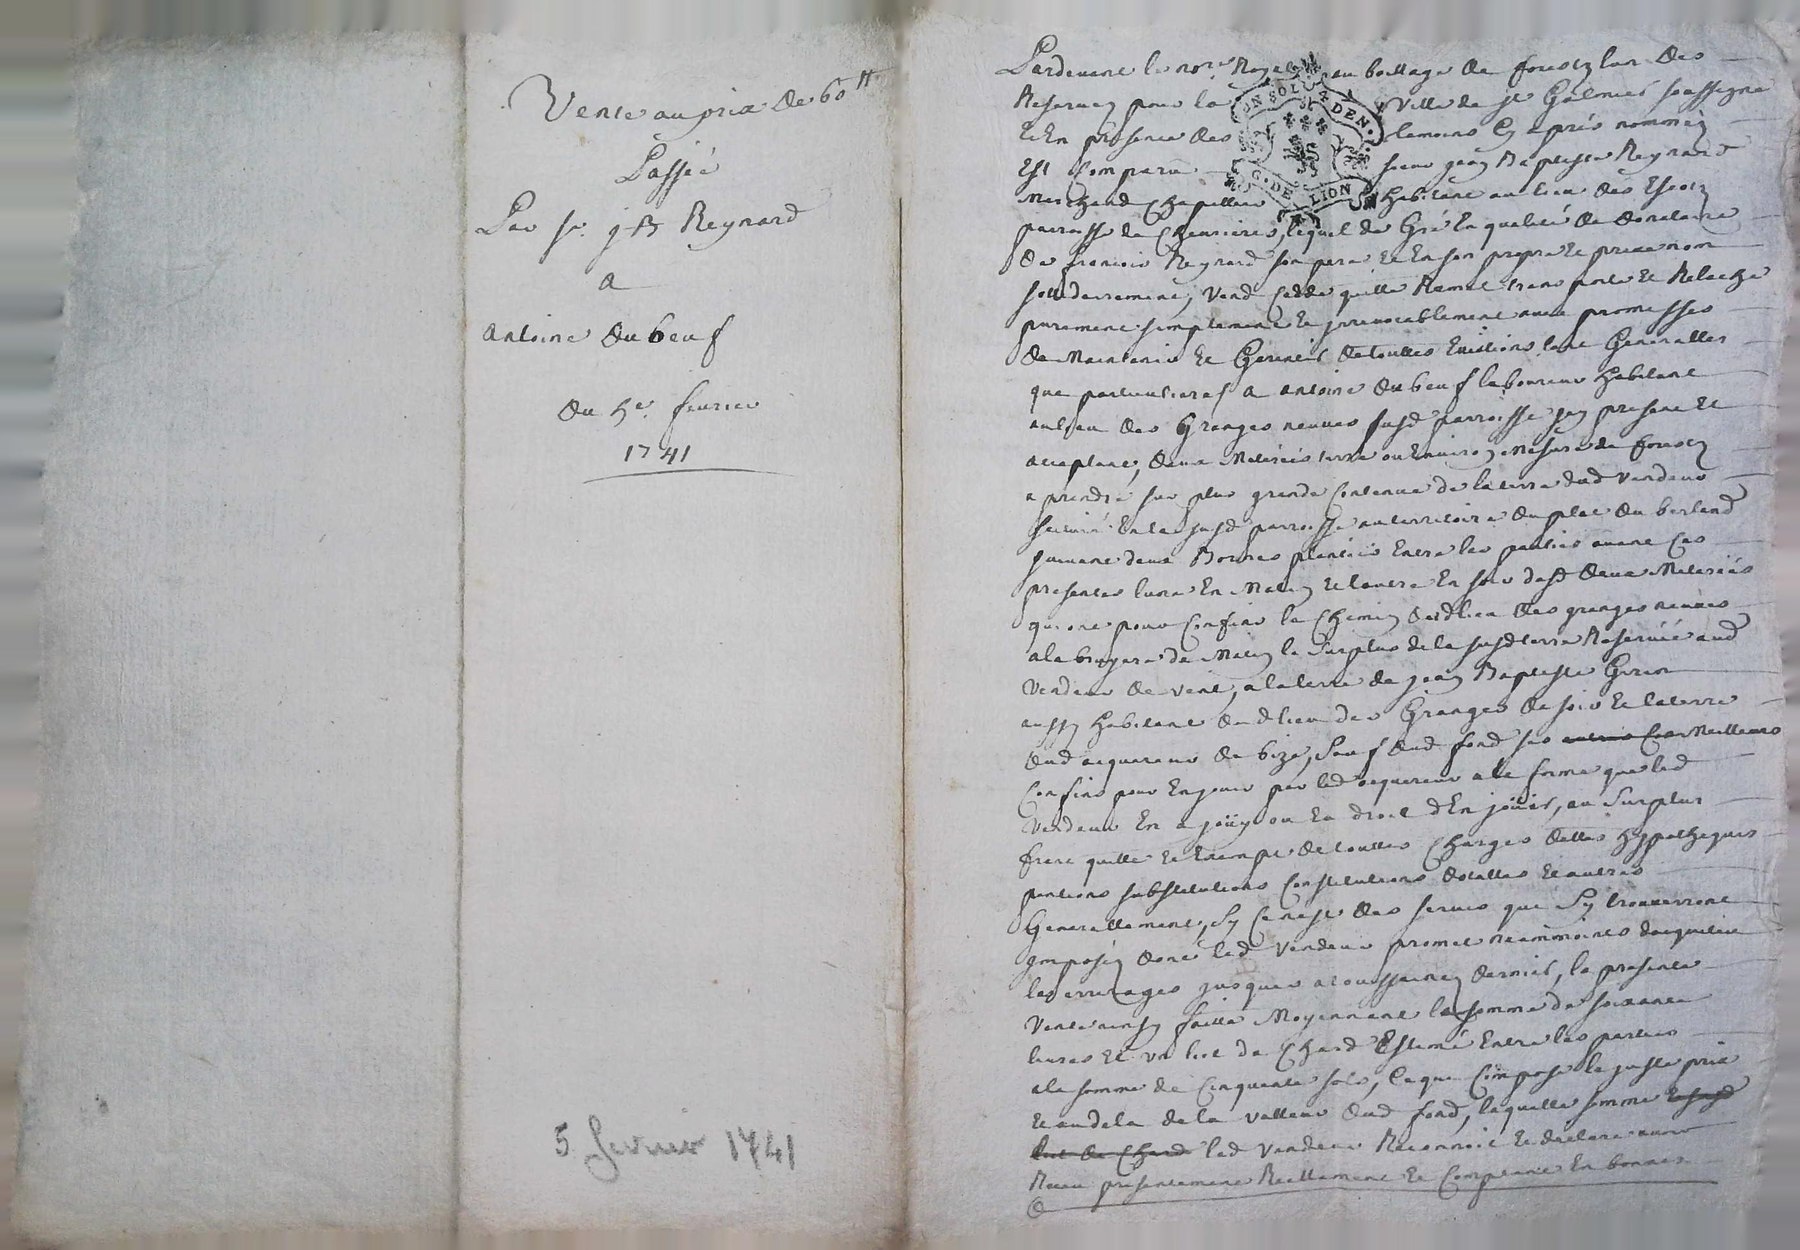 Vente au prix de 60 ₶
Passée
Par sr. J B Reynard
a
antoine dubeuf
du 5e. fevrier
1741
5 fevrier 1741
Pardevant le nore. Royal au baillage de forestz lun des
Reservez pour la ville de st Galmier soussigné
et En presence des temoins cy aprés nommez
Est Comparu sieur jean Baptiste Reynard
Marchand Chapellier habitant au lieu des
parroisse de Chevrieres, lequel de Gré En qualité de donataire
de francois Reynard son pere et En son propre et privé nom
sollidairement, vend cedde quitte Remet transporte et Relache
purement simplement et jrrevocablement avec promesses
de Maintenir et Garentir de touttes Evictions tant Generalles
que particulieres a antoine dubeuf laboureur habitant
au lieu des Granges neuves susd parroisse jcy present et
acceptant, deux Meterées terre ou Environ Mesure de forestz
a prendre sur plus grande Contenue de la terre dud vendeur
scituée En la susd parroisse au territoire du plat du berland
suivant deux Bornes plantées Entre les parties avant Ces
presentes lune En Matin et lautre En soir desd deux Meterées
qui ont pour Confins le Chemin dud lieu des granges neuves
a la bruyere de Matin le surplus de la susd terre Reservée aud
Vendeur de vent, a la terre de jean Baptiste
aussy habitant dud lieu des Granges de soir et la terre
dud acquereur de bize, sauf dud fond ses Meilleurs
Confins pour En jouir par led acquereur a la forme que led
Vendeur En a joüy ou Eu droit d'En joüir, au surplus
franc quitte et Exempt de touttes Charges dettes hypotheques
pentions substitutions Constitutions dotalles et autres
Generallement, sy Ce n'est des servis que sy trouverront
jmposéz dont led vendeur promet neanmoints dacquitter
les arrerages jusques a toussaintz dernier, la presente
Vente ainsy faitte Moyennant la somme de soixante
livres et un lict de Chard Estimé Entre les parties
a la somme de Cinquante sols, Ce que Compose le juste prix
et audela de la valleur dud fond, laquelle somme
led vendeur Reconnoit et declare avoir
Receu presentement Reellement et Comptant En bonnes